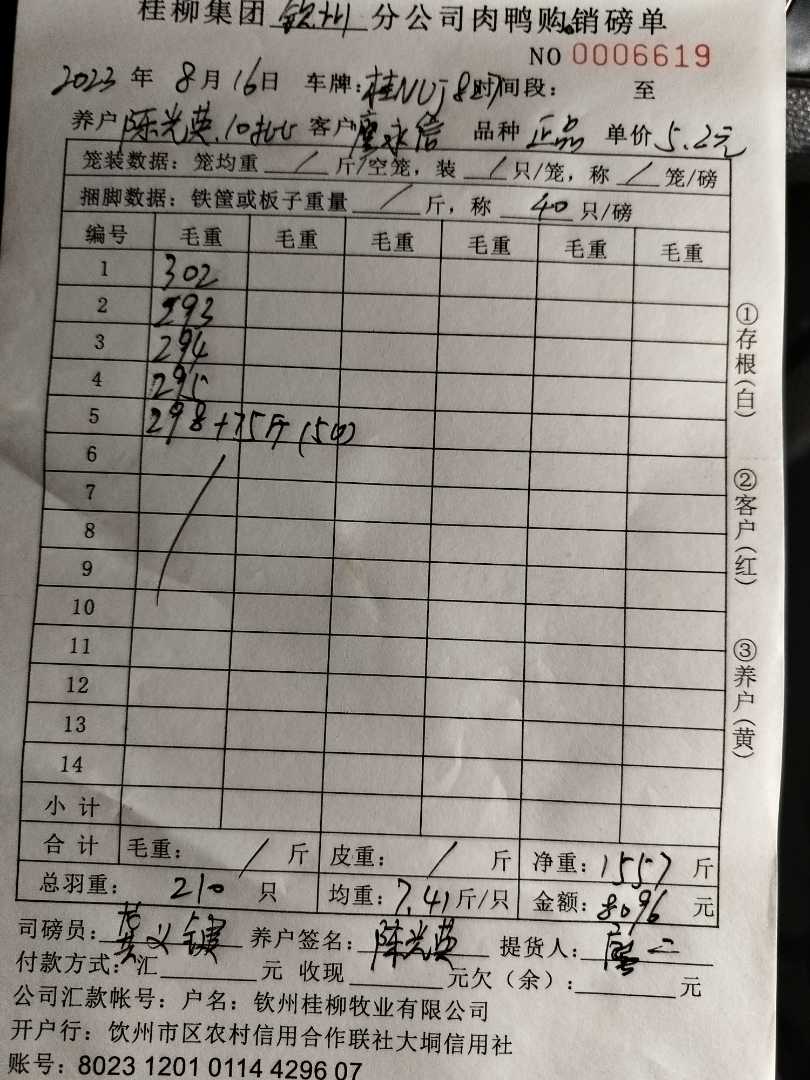 桂柳集团 钦州 分公司肉鸭购销磅单
NO 0006619
2023 年 8 月 16 日 车牌: 桂NUJ87 时间段: 至
养户 陈光英 客户 唐永信 品种 正品 单价 5.2元
笼装数据: 笼均重 / 斤/空笼, 装 / 只/笼, 称 / 笼/磅
捆脚数据: 铁筐或板子重量 / 斤, 称 40 只/磅
编号 毛重 毛重 毛重 毛重 毛重 毛重
1 302
2 293
3 294
4 295
5 298+75斤(50)
6
7
8
9
10
11
12
13
14
小计
合计 毛重: / 斤 皮重: / 斤 净重: 1557 斤
总羽重: 210 只 均重: 7.41 斤/只 金额: 8096 元
司磅员: 黄义键 养户签名: 陈光英 提货人: 唐二
付款方式: 汇 元 收现 元欠(余): 元
公司汇款帐号: 户名: 钦州桂柳牧业有限公司
开户行: 饮州市区农村信用合作联社大垌信用社
账号: 8023 1201 0114 4296 07
①存根(白)
②客户(红)
③养户(黄)